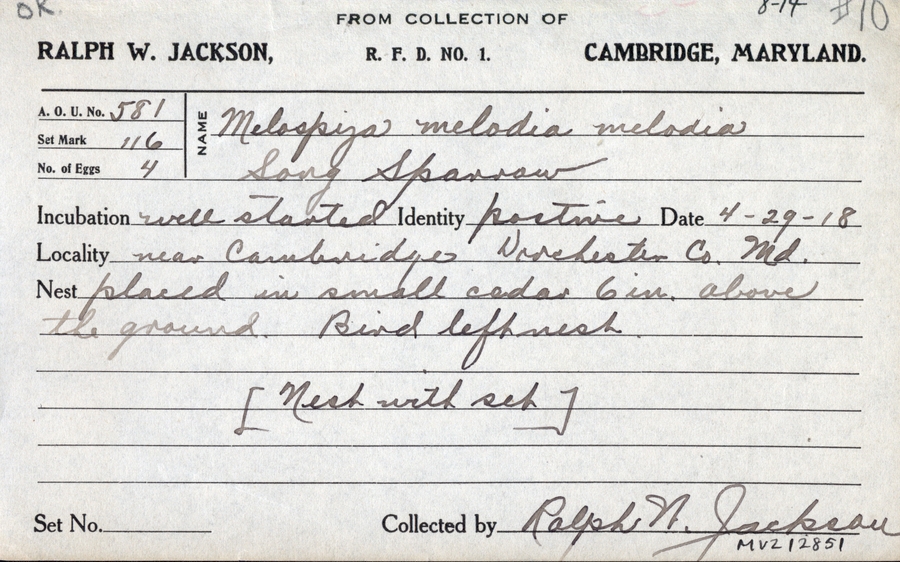 OK.
8-14 #10
FROM COLLECTION OF
RALPH W. JACKSON, R. F. D. NO. 1. CAMBRIDGE, MARYLAND.
A. O. U. No. 581
Set Mark 116
No. of Eggs 4
NAME Melospiza melodia melodia
Song Sparrow
Incubation well started Identity positive Date 4-29-18
Locality near Cambridge Dorchester Co. Md.
Nest placed in small cedar 6 in. above
the ground. Bird left nest.
[Nest with set]
Set No.
Collected by Ralph W. Jackson
MVZ 12851